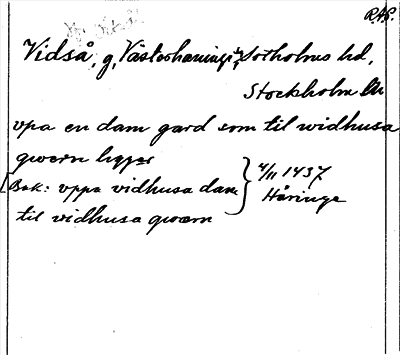 R.A.P.
Vidså, g, Västerhaninge s, Sotholms hd,
Stockholm län
vpa en dam gard som til widhusa
qwern ligger
[Bak: vppa vidhusa dam
til vidhusa qwærn
4/11 1437
Håringe